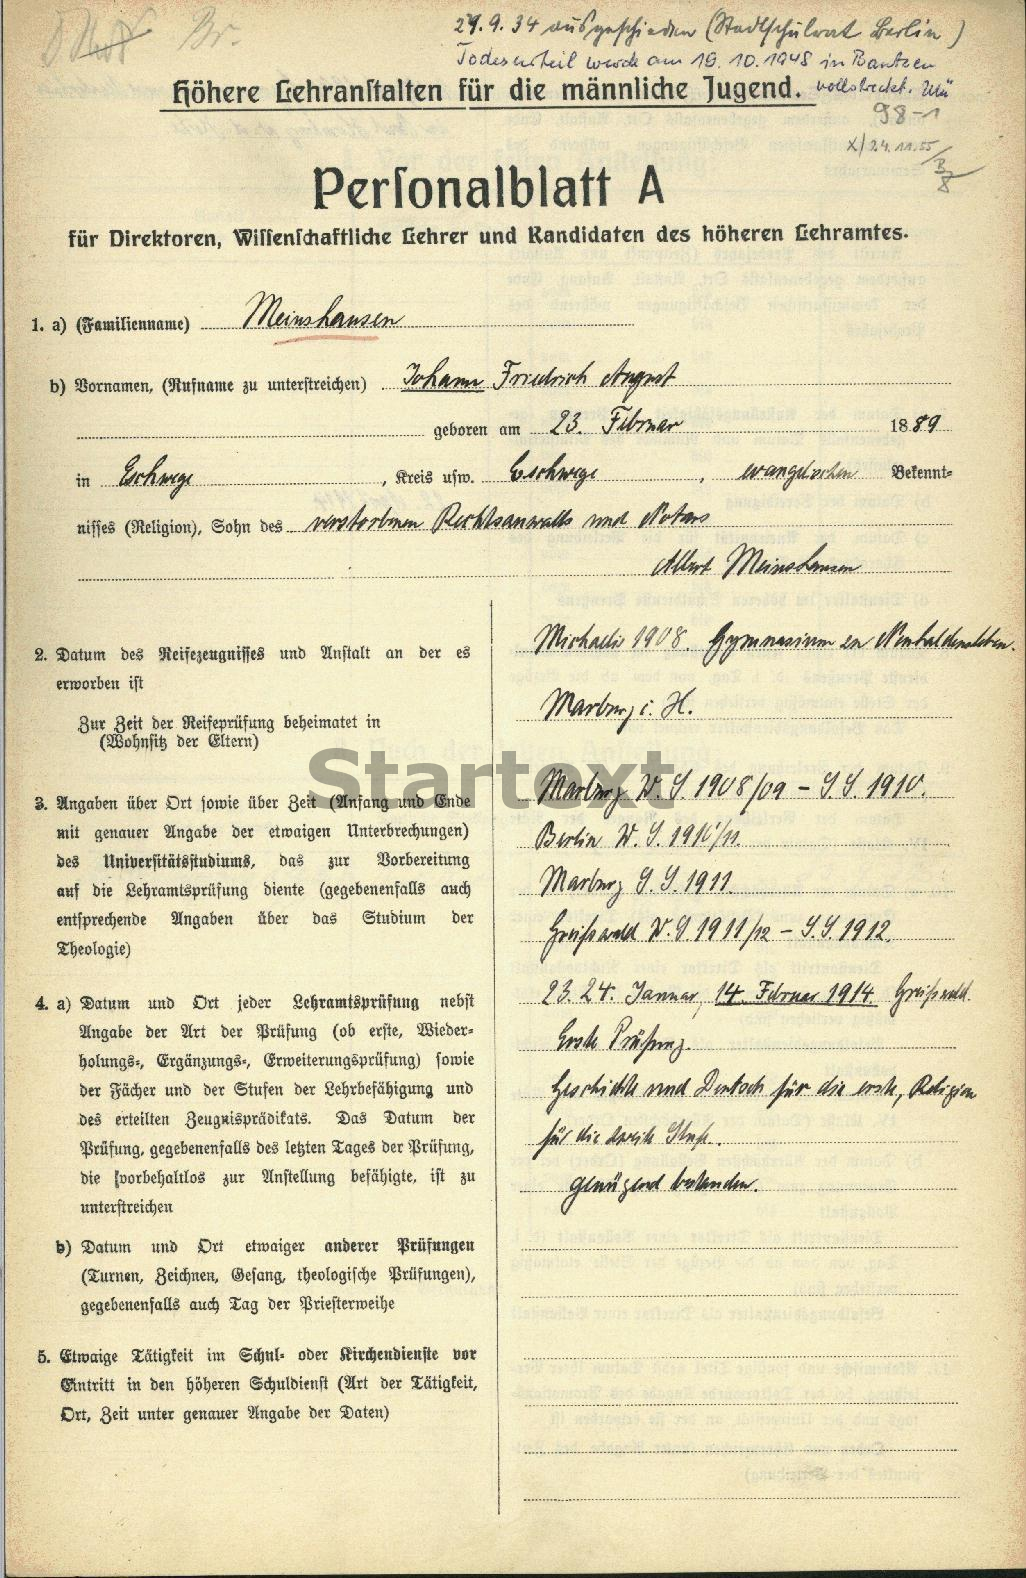 Br.
29.9.34 ausgeschieden (Stadtschulrat Berlin)
Todesurteil wurde am 19.10.1948 in Bautzen
vollstreckt.
Höhere Lehranstalten für die männliche Jugend.
98-1
X/24.11.55
Personalblatt A
für Direktoren, Wissenschaftliche Lehrer und Kandidaten des höheren Lehramtes.
1. a) (Familienname) Meinshausen
b) Vornamen, (Rufname zu unterstreichen) Johann Friedrich August
geboren am 23. Februar 1889
in Eschwege, Kreis usw. Eschwege, evangelischen Bekennt-
nisses (Religion), Sohn des verstorbenen Rechtsanwalts und Notars
Albert Meinshausen
2. Datum des Reifezeugnisses und Anstalt an der es
erworben ist
Michaelis 1908. Gymnasium zu Neuhaldensleben.
Zur Zeit der Reifeprüfung beheimatet in
(Wohnsitz der Eltern)
Marburg i. H.
Startext
3. Angaben über Ort sowie über Zeit (Anfang und Ende
mit genauer Angabe der etwaigen Unterbrechungen)
des Universitätsstudiums, das zur Vorbereitung
auf die Lehramtsprüfung diente (gegebenenfalls auch
entsprechende Angaben über das Studium der
Theologie)
Marburg W.S 1908/09 – S.S. 1910.
Berlin W.S. 1910/11.
Marburg S.S. 1911.
Greifswald W.S 1911/12 – S.S 1912.
4. a) Datum und Ort jeder Lehramtsprüfung nebst
Angabe der Art der Prüfung (ob erste, Wieder-
holungs-, Ergänzungs-, Erweiterungsprüfung) sowie
der Fächer und der Stufen der Lehrbefähigung und
des erteilten Zeugnisprädikats. Das Datum der
Prüfung, gegebenenfalls des letzten Tages der Prüfung,
die vorbehaltlos zur Anstellung befähigte, ist zu
unterstreichen
23. 24. Januar, 14. Februar 1914. Greifswald.
Erste Prüfung.
Geschichte und Deutsch für die erste, Religion
für die zweite Stufe.
genügend bestanden.
b) Datum und Ort etwaiger anderer Prüfungen
(Turnen, Zeichnen, Gesang, theologische Prüfungen),
gegebenenfalls auch Tag der Priesterweihe
5. Etwaige Tätigkeit im Schul- oder Kirchendienste vor
Eintritt in den höheren Schuldienst (Art der Tätigkeit,
Ort, Zeit unter genauer Angabe der Daten)